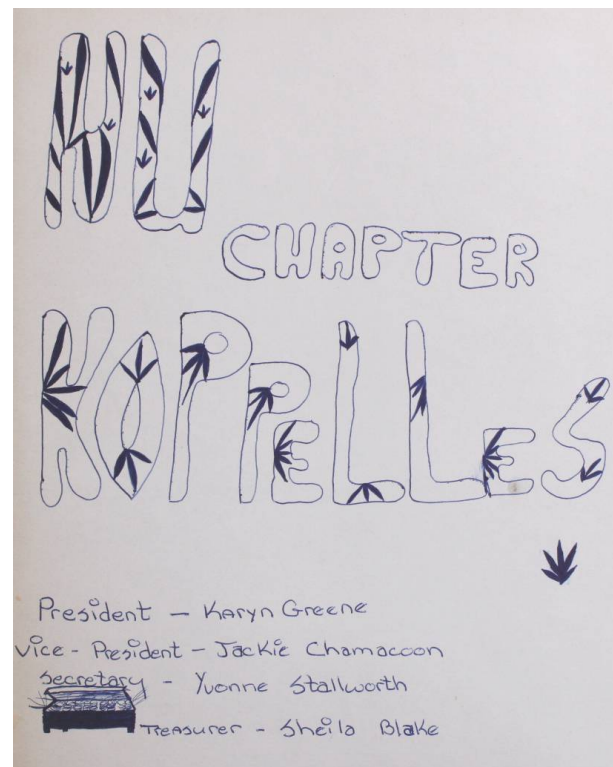 NU
CHAPTER
KOPPELLES
President – Karyn Greene
Vice - President – Jackie Chamacoon
Secretary - Yvonne Stallworth
Treasurer - Sheila Blake